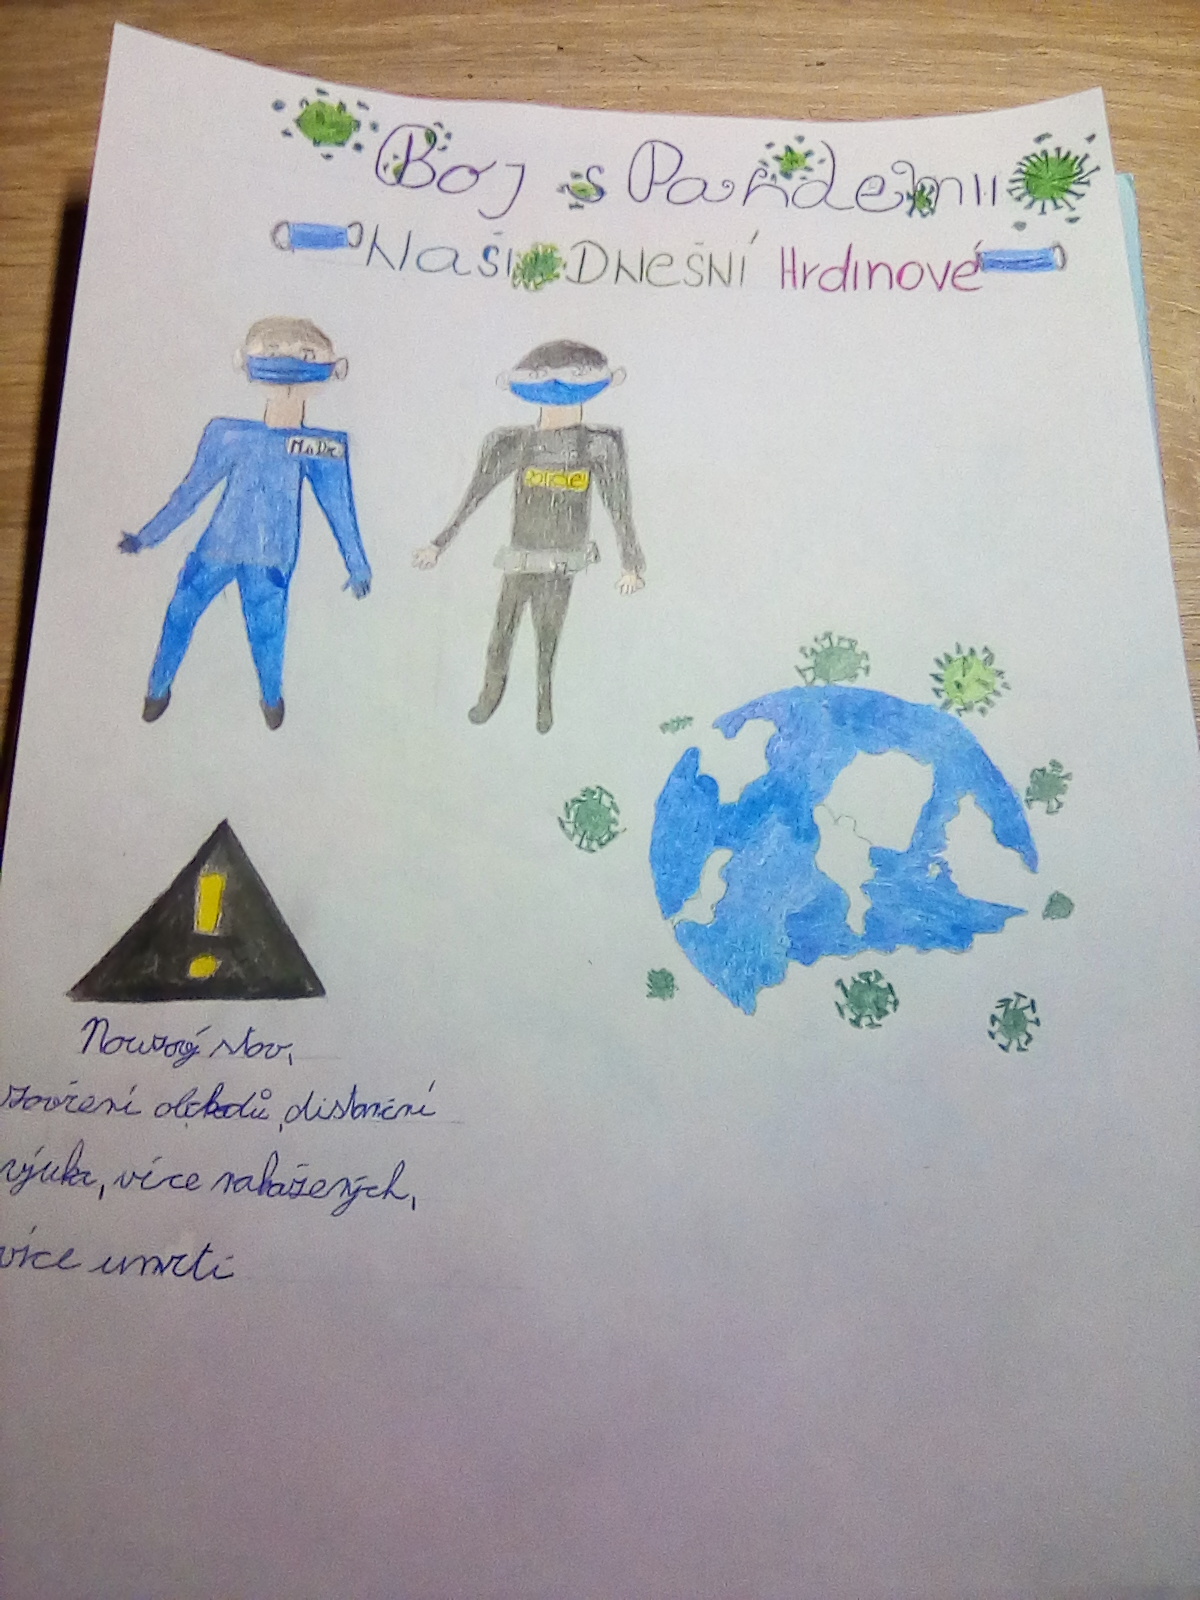 Boj s Pandemií
Naši DNEŠNÍ Hrdinové
MuDr.
Nouzový stav,
zavření obchodů, distanční
výuka, více nakažených,
více umrtí